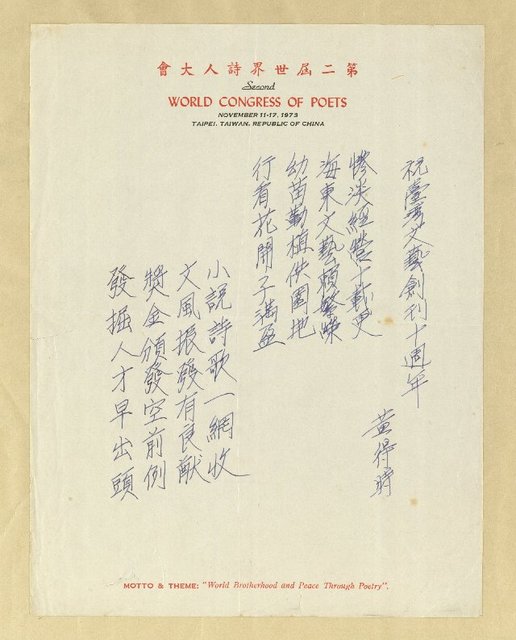 會大人詩界世屆二第
Second
WORLD CONGRESS OF POETS
NOVEMBER 11-17, 1973
TAIPEI, TAIWAN, REPUBLIC OF CHINA
祝臺灣文藝創刊十週年
黃得時
慘淡經營十載更
海東文藝賴繁榮
幼苗勤植供園地
行看花開子滿盈
小說詩歌一網收
文風振發有良猷
獎金頒發空前例
發掘人才早出頭
MOTTO & THEME: "World Brotherhood and Peace Through Poetry".